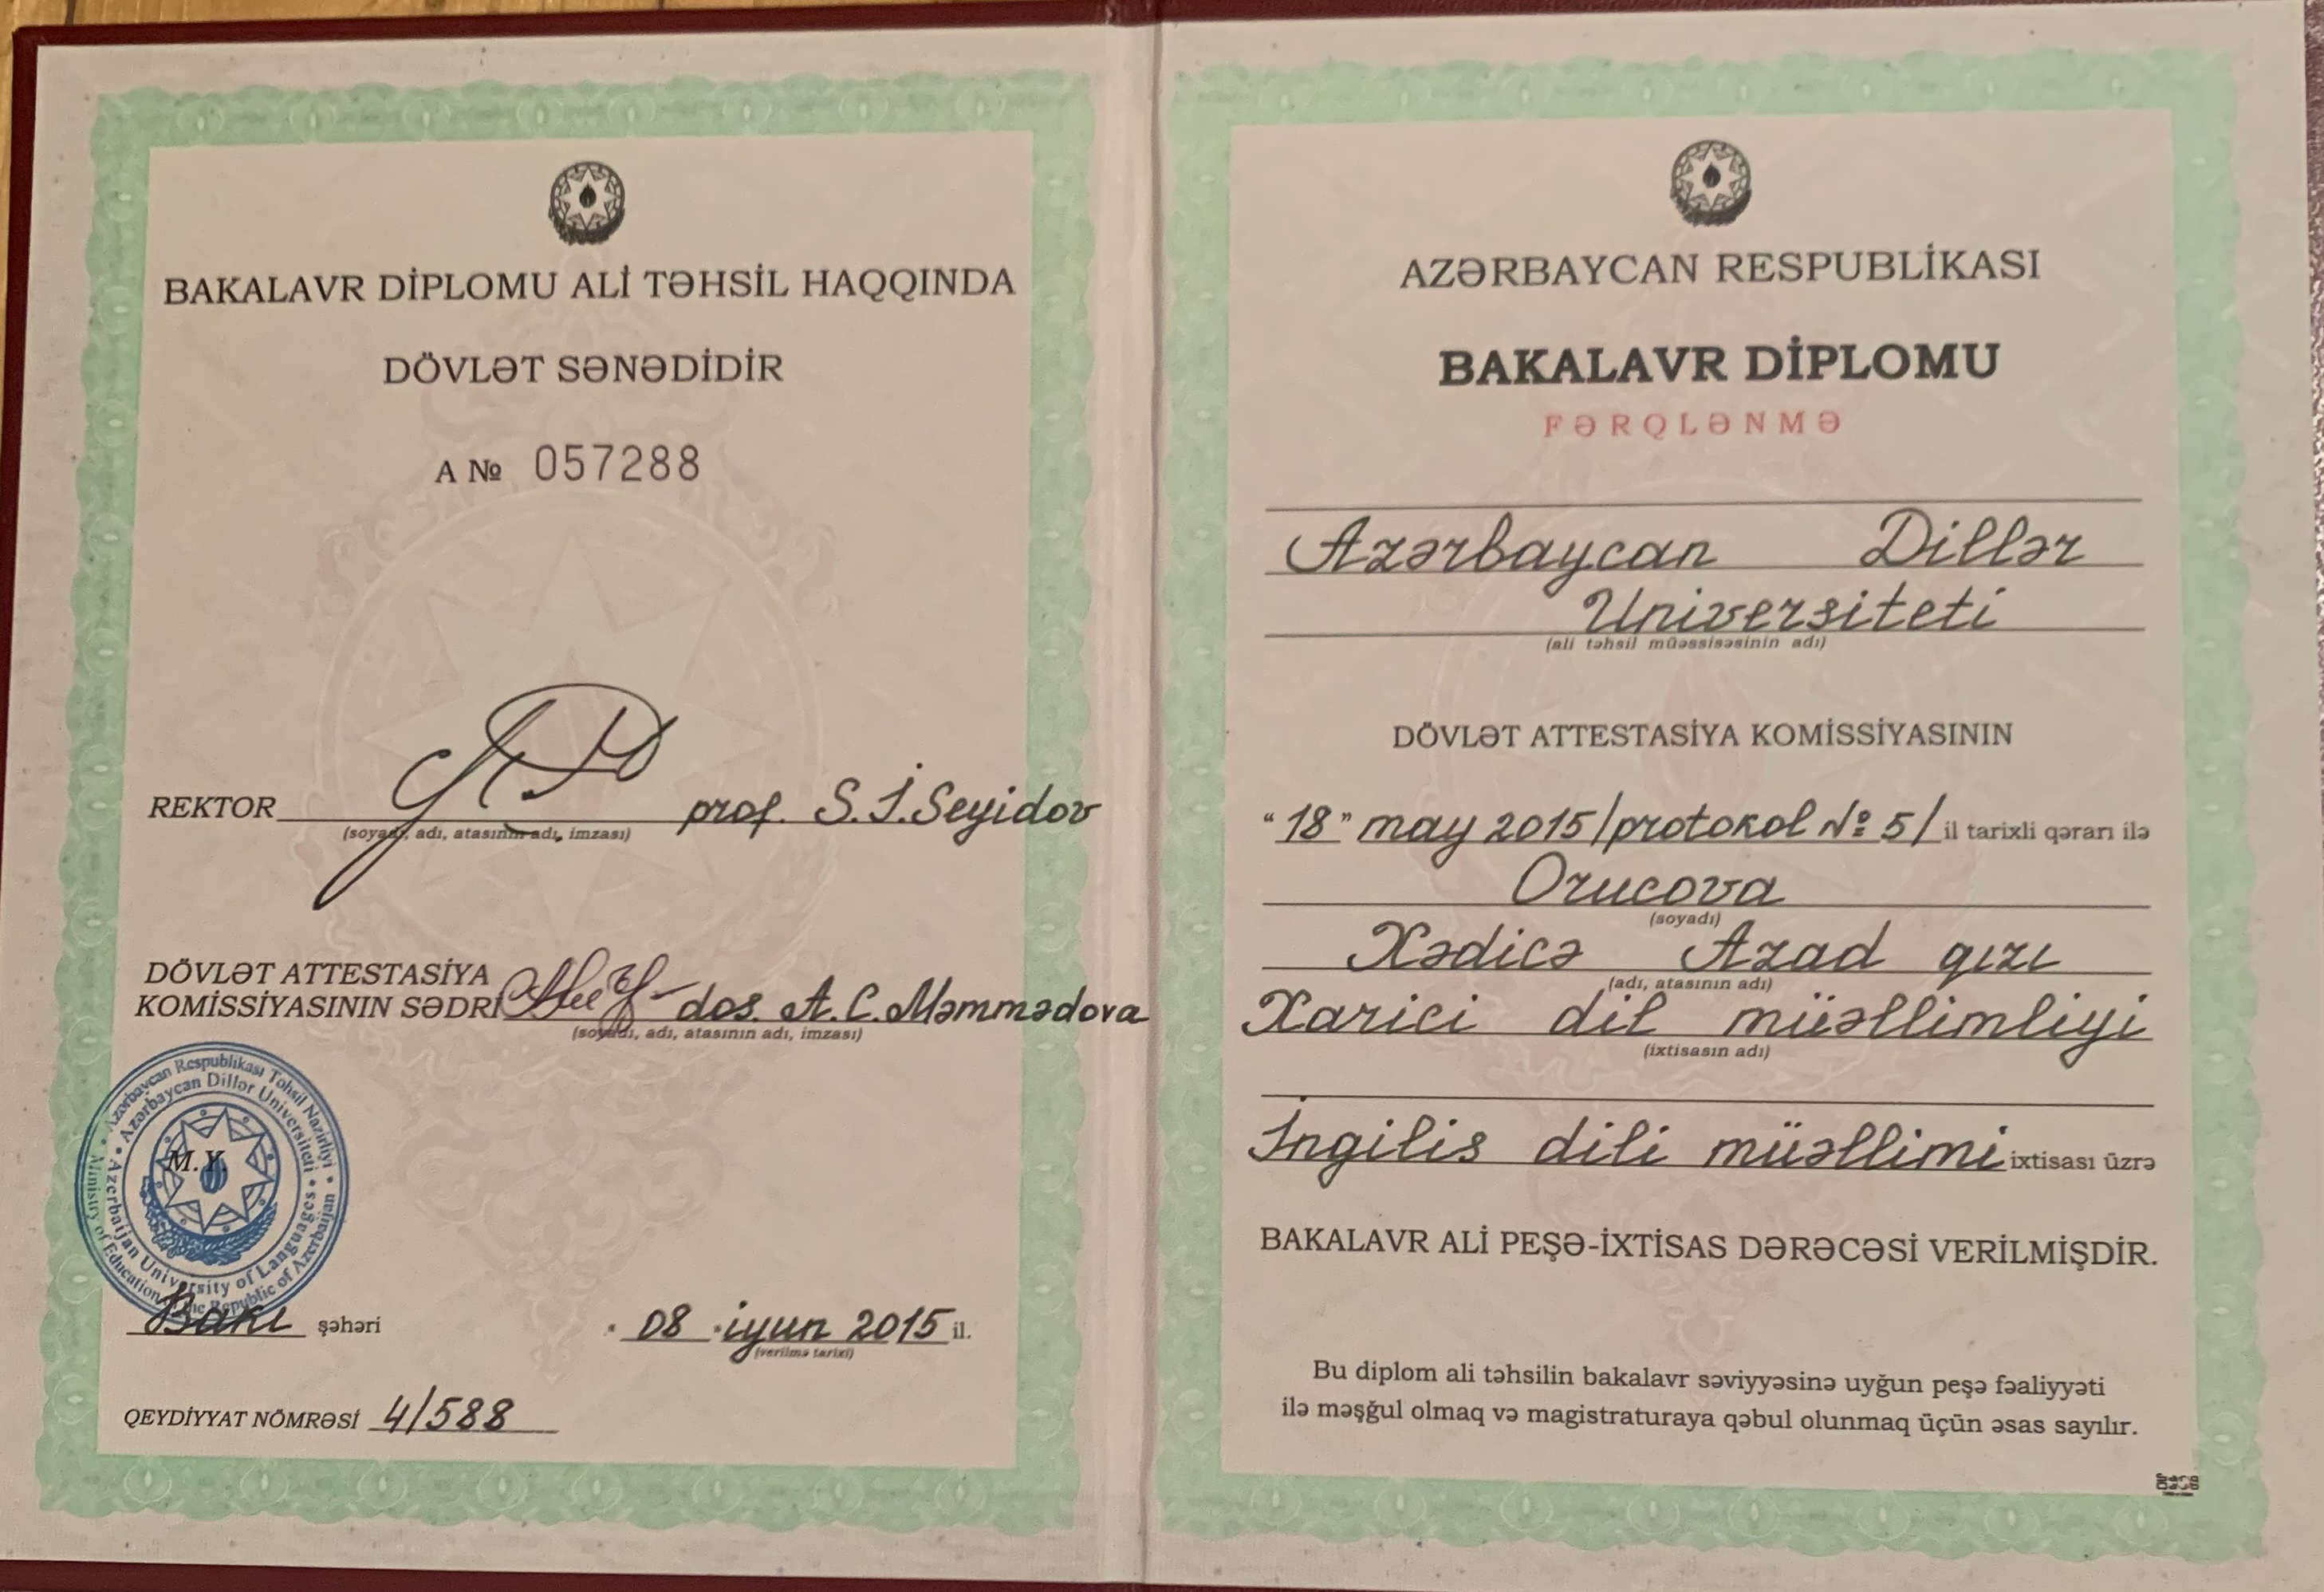 BAKALAVR DİPLOMU ALİ TƏHSİL HAQQINDA
DÖVLƏT SƏNƏDİDİR
A № 057288
REKTOR prof. S.İ.Seyidov
(soyadı, adı, atasının adı, imzası)
DÖVLƏT ATTESTASİYA
KOMİSSİYASININ SƏDRİ dos. A.C.Məmmədova
(soyadı, adı, atasının adı, imzası)
Azərbaycan Respublikası Təhsil Nazirliyi
Azərbaycan Dillər Universiteti
M.Y.
Azerbaijan University of Languages
Ministry of Education of the Republic of Azerbaijan
Bakı şəhəri
"08" iyun 2015 il.
(verilmə tarixi)
QEYDİYYAT NÖMRƏSİ 4/588
AZƏRBAYCAN RESPUBLİKASI
BAKALAVR DİPLOMU
FƏRQLƏNMƏ
Azərbaycan Dillər
Universiteti
(ali təhsil müəssisəsinin adı)
DÖVLƏT ATTESTASİYA KOMİSSİYASININ
"18" may 2015/protokol № 5/ il tarixli qərarı ilə
Orucova
(soyadı)
Xədicə Azad qızı
(adı, atasının adı)
Xarici dil müəllimliyi
(ixtisasın adı)
İngilis dili müəllimi ixtisası üzrə
BAKALAVR ALİ PEŞƏ-İXTİSAS DƏRƏCƏSİ VERİLMİŞDİR.
Bu diplom ali təhsilin bakalavr səviyyəsinə uyğun peşə fəaliyyəti
ilə məşğul olmaq və magistraturaya qəbul olunmaq üçün əsas sayılır.